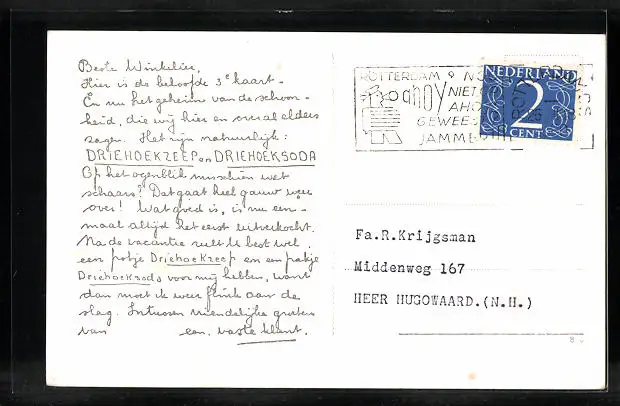 Beste Winkelier,
Hier is de beloofde 3e kaart.
En nu het geheim van de schoon-
heid, die wij hier en overal elders
zagen. Het zijn natuurlijk:
DRIEHOEKZEEP en DRIEHOEKSODA
Op het ogenblik misschien wat
schaars? Dat gaat heel gauw weer
over! Wat goed is, is nu een-
maal altijd het eerst uitverkocht.
Na de vacantie zult U best wel
een potje Driehoekzeep en een pakje
Driehoeksoda voor mij hebben, want
dan moet ik weer flink aan de
slag. Intussen vriendelijke groeten
van een vaste klant.
ROTTERDAM
ahoy
NIET
AHOY
GEWEEST
JAMMER
NEDERLAND
2
CENT
Fa.R.Krijgsman
Middenweg 167
HEER HUGOWAARD.(N.H.)
8